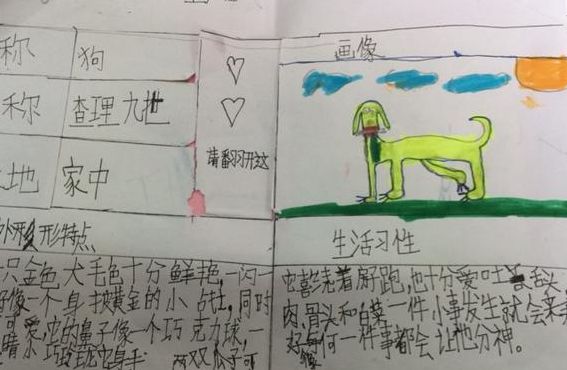 称
狗
称
查理九世
地
家中
请翻开这
画像
外形特点
只金色犬毛色十分鲜艳,一闪一
像一个身披黄金的小战士,同时
可爱,它的鼻子像一个巧克力球,一
生活习性
它喜绕着屏跑,也十分爱吐舌头,
肉、骨头和一件小事发生就会来
好何一件事都会让他分神。